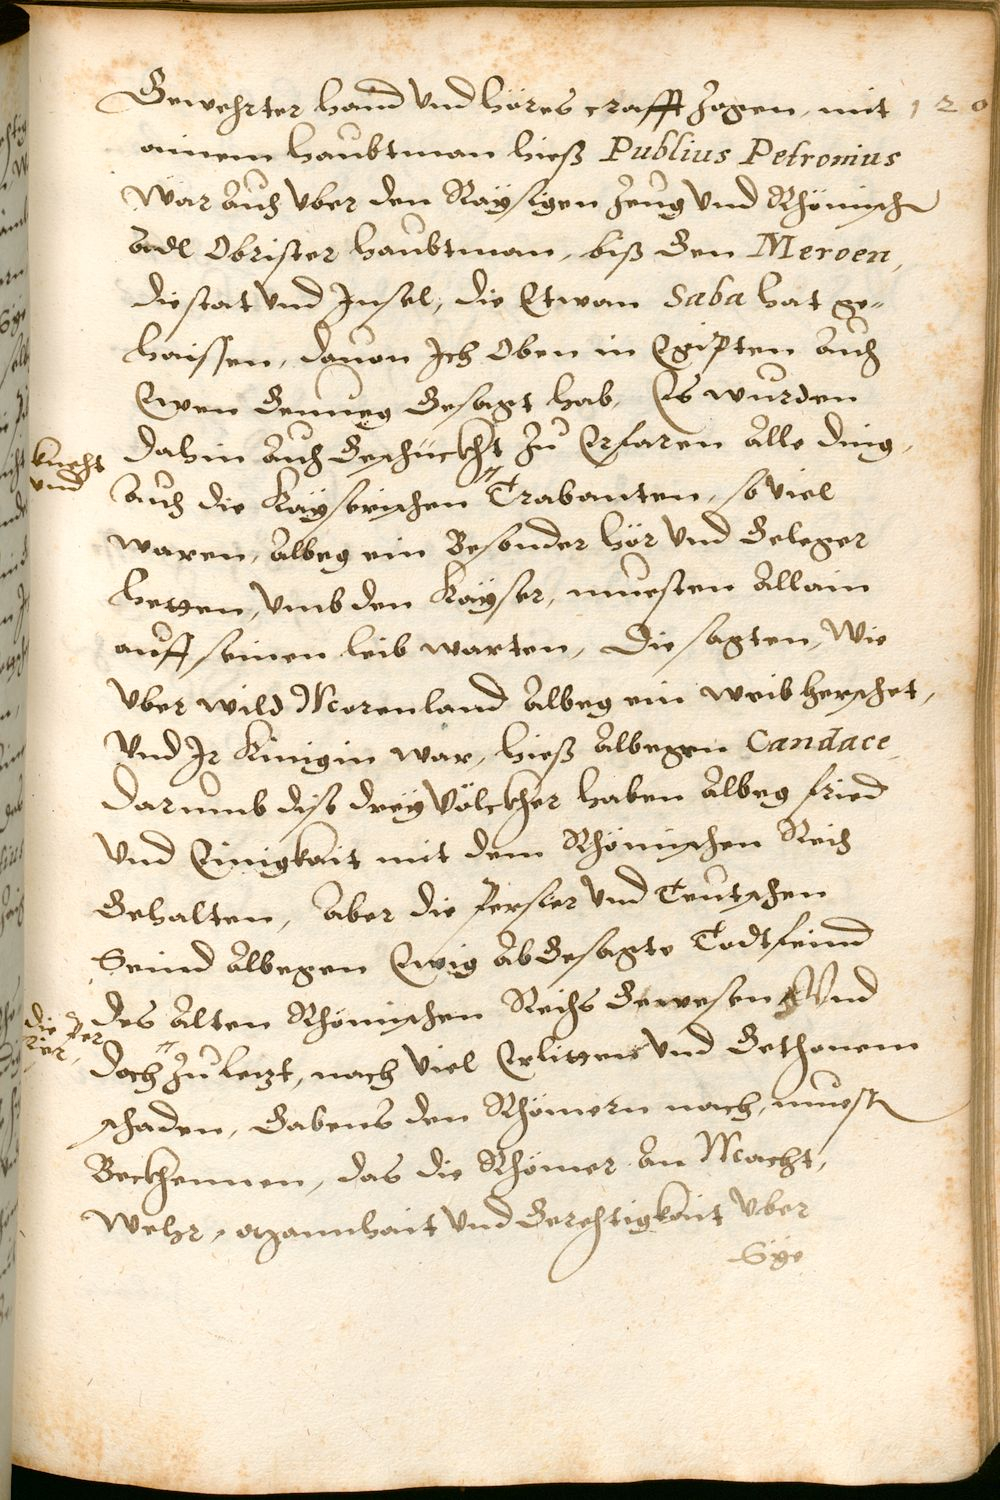 Gewehrter hand vnd höres crafft zogen, mit 120
ainem haubtman hieß Publius Petronius
War auch vber den Raÿsigen zeug vnd Rhömisch
adl Obrister haubtman, biß gen Meroen,
die stat vnd Insel, die Etwan Saba hat ge-
haissen, dauon Ich Oben in Egipten auch
Eben Genueg Gesagt hab, Es wurden
dahin auch Geschückht zu Erfaren alle ding,
auch die Kaÿserischen " Trabanten, so viel
knecht
vnd
waren, albeg ein Besonder hör vnd Geleger
hetten, vmb den Kaÿser, muesten allain
auff seinen leib warten, die sagten, Wie
vber wild Morenland albeg ein weib herschet,
vnd Ir Kinigin war, hieß albegen Candace
darumb dise dreÿ Völckher haben albeg fried
vnd Einigkait mit dem Rhömischen Reich
Gehalten, aber die Perser vnd Teutschen
Seind albegen Ewig abGesagte Todtfeind
des alten Rhömischen Reichs Gewesen, Vnd
die Per
ser,
doch " zu letzt, nach viel Erlitten vnd Gethonem
schaden, Gabens den Rhömern nach, muest
Bekhennen, das die Rhömer an Macht,
Wehr, vnd Gerechtigkait vber
Sÿe